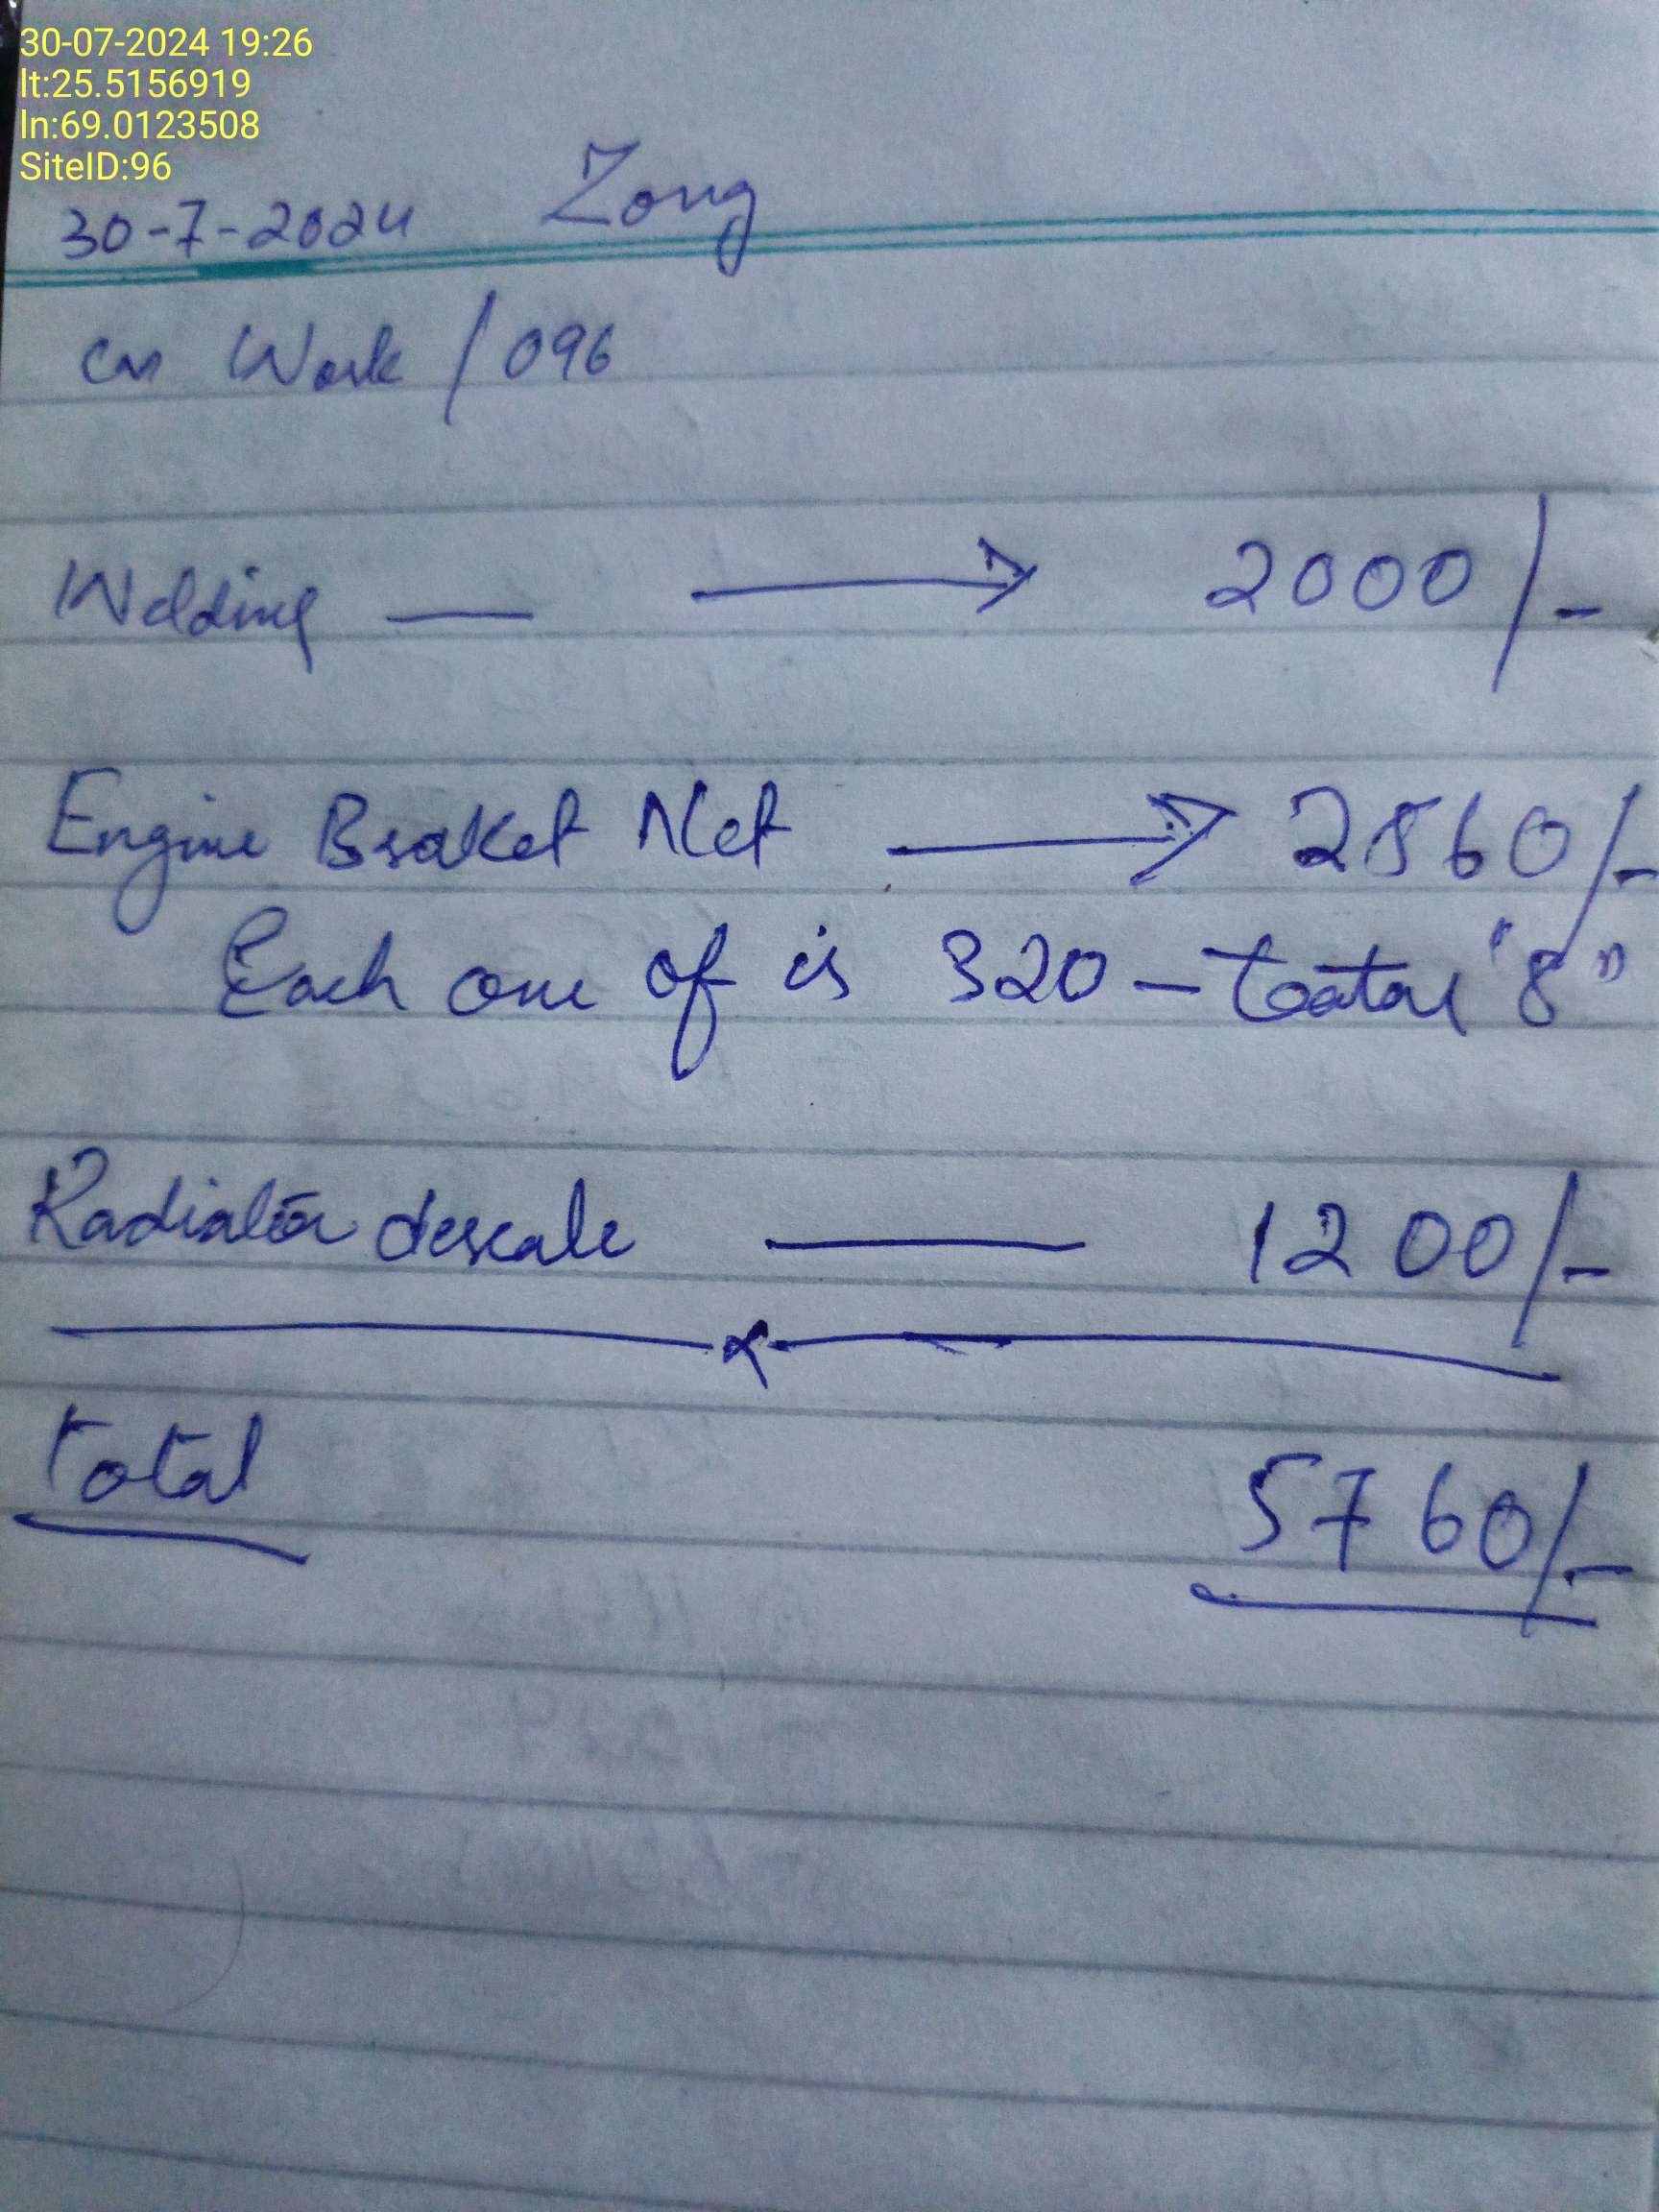 30-07-2024 19:26
lt:25.5156919
ln:69.0123508
SiteID:96
30-7-2024 Zong
CM Work / 096
Welding — → 2000/-
Engine Braket Net → 2560/-
Each one of is 320 - Toatal "8"
Radiator descale — 1200/-
total 5760/-